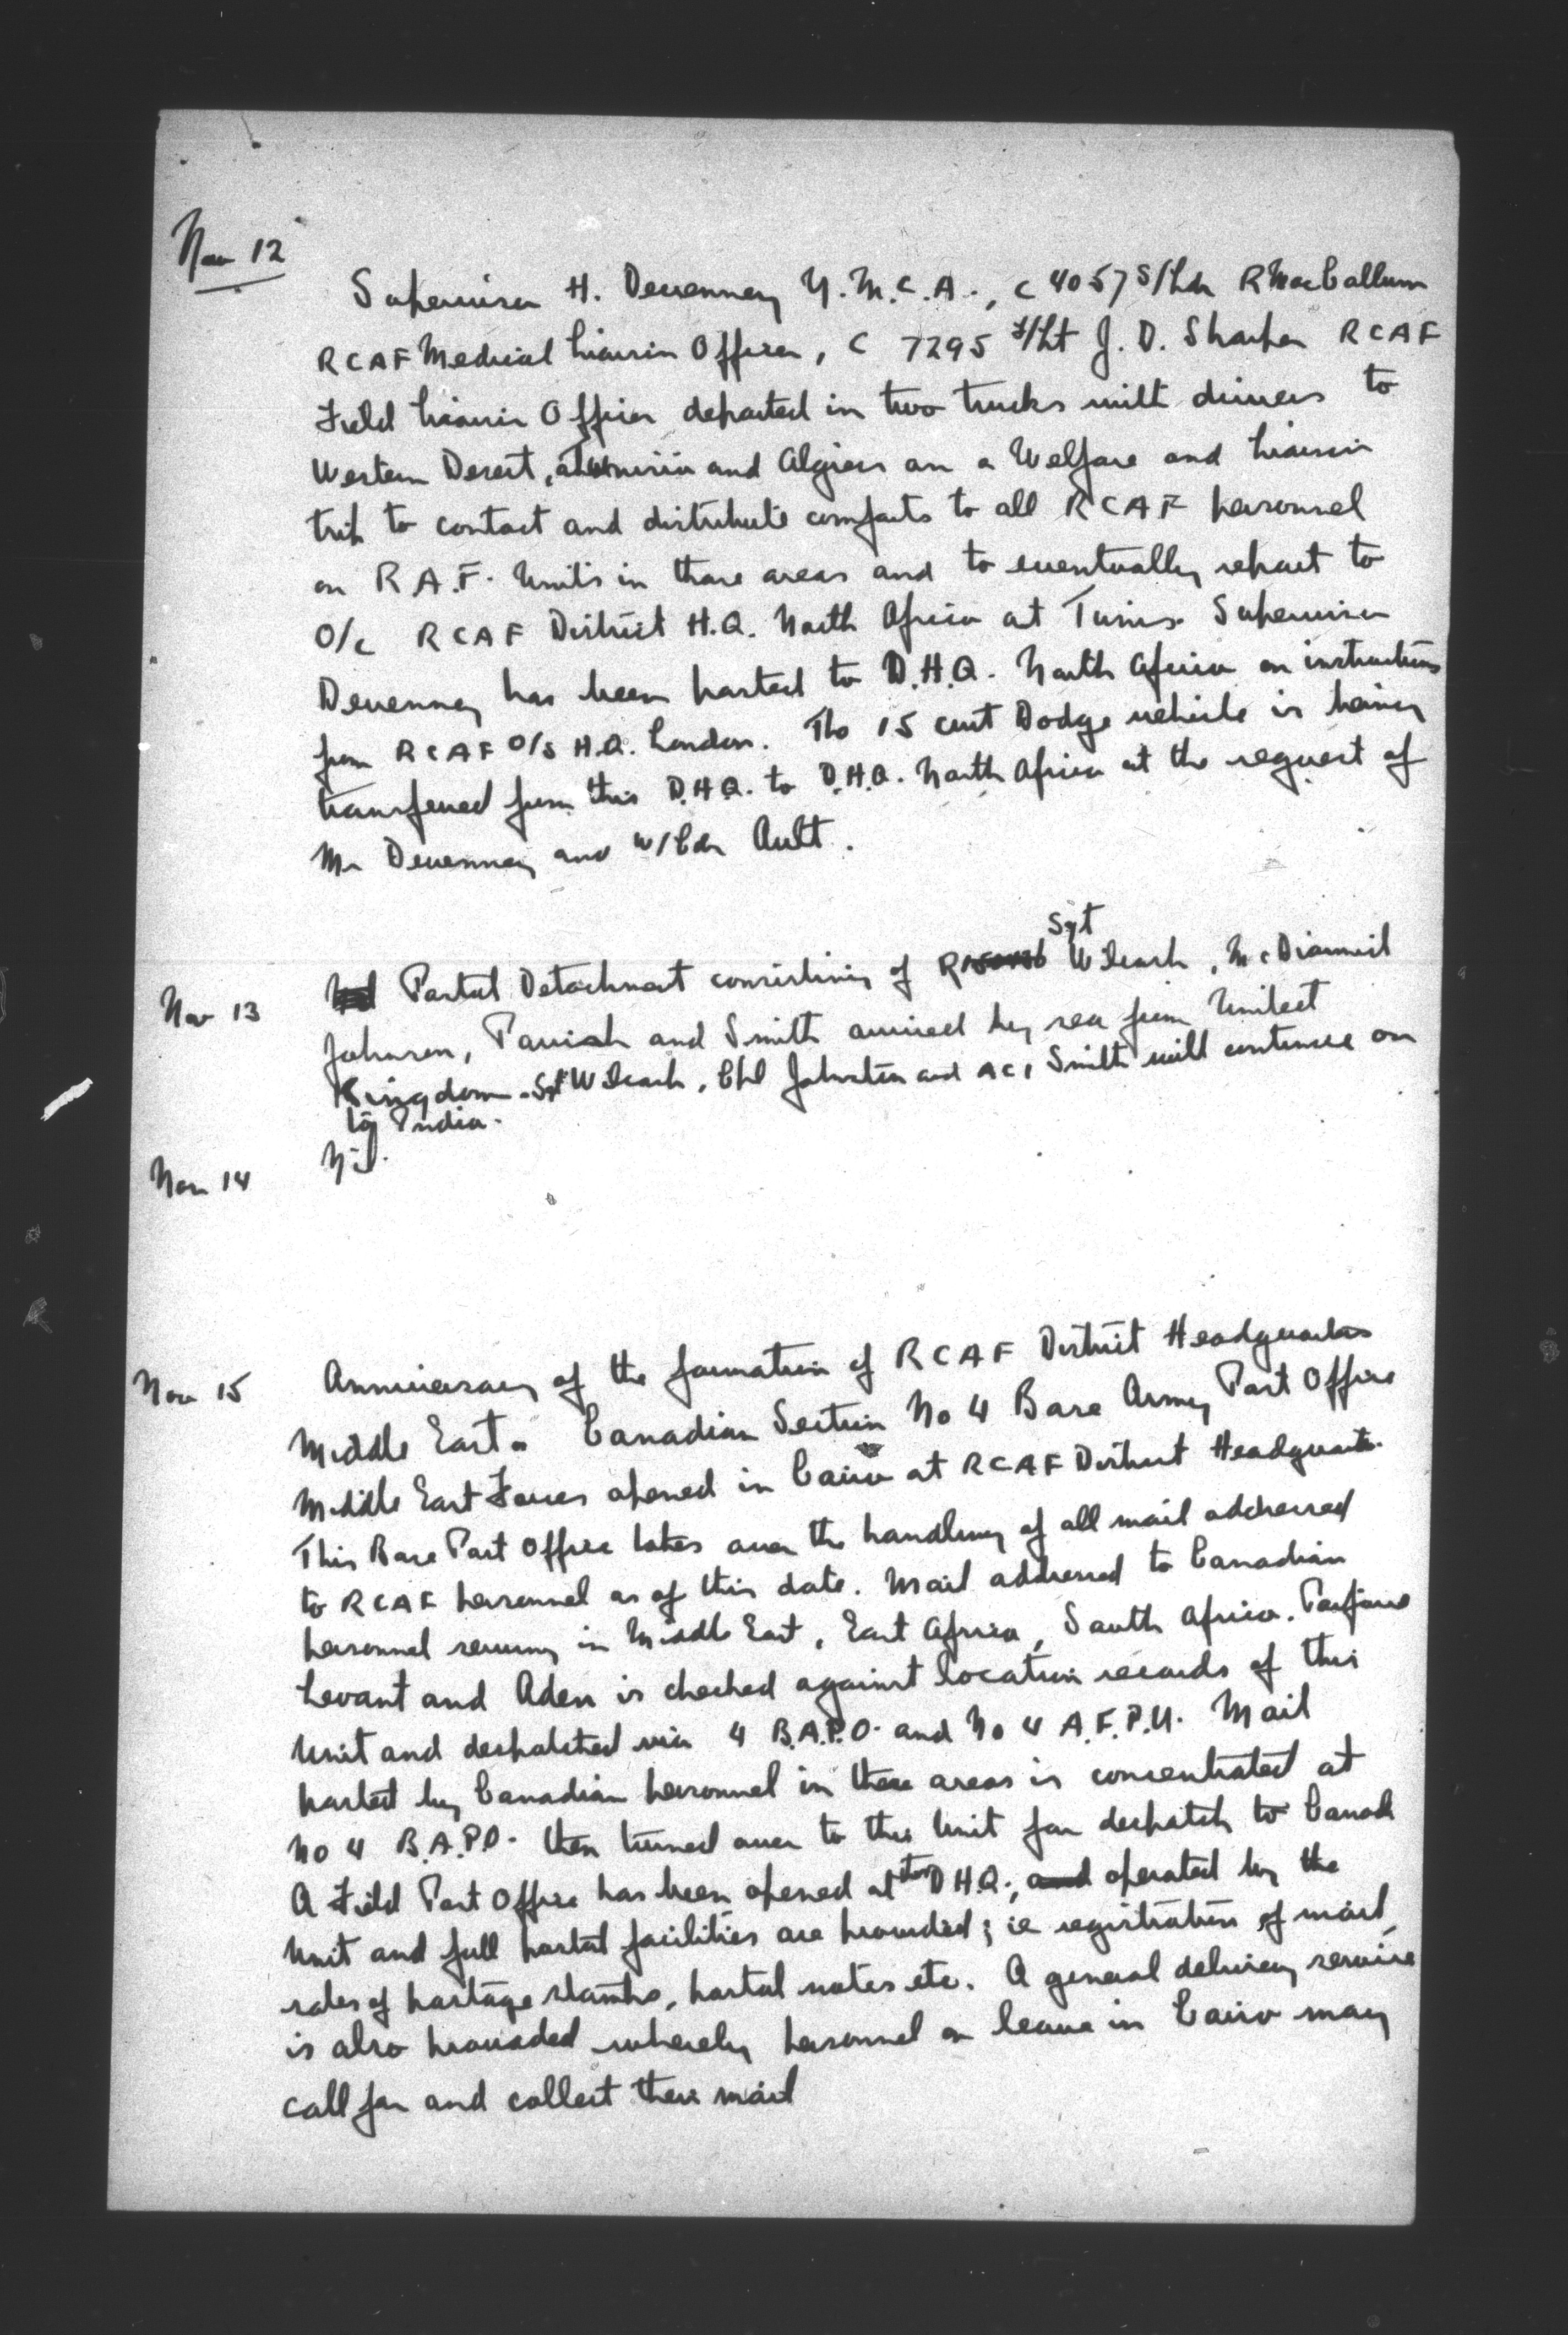 Nov 12
Supervisor H. Devenney Y.M.C.A., C 4057 S/Ldr R MacCallum
RCAF Medical Liaison Officer, C 7295 F/Lt J. D. Sharpe RCAF
Field Liaison Officer departed in two trucks with drivers to
Western Desert, Tunisia and Algiers on a Welfare and Liaison
trip to contact and distribute comforts to all RCAF personnel
on R.A.F. Units in those areas and to eventually report to
O/c RCAF District H.Q. North Africa at Tunis. Supervisor
Devenney has been posted to D.H.Q. North Africa on instructions
from RCAF O/S H.Q. London. The 15 cwt Dodge vehicle is being
transferred from this D.H.Q. to D.H.Q. North Africa at the request of
Mr Devenney and W/Cdr Ault.
Nov 13 Postal Detachment consisting of Sgt McDiarmid
Johnson, Parrish and Smith arrived by sea from United
Kingdom. Sgt Cpl Johnston and AC1 Smith will continue on
to India.
Nov 14 Nil.
Nov 15 Anniversary of the formation of RCAF District Headquarters
Middle East. Canadian Section No 4 Base Army Post Office
Middle East Forces opened in Cairo at RCAF District Headquarters.
This Base Post Office takes over the handling of all mail addressed
to RCAF personnel as of this date. Mail addressed to Canadian
personnel serving in Middle East, East Africa, South Africa.
Levant and Aden is checked against location records of this
Unit and despatched via 4 B.A.P.O. and No 4 A.F.P.U. Mail
posted by Canadian personnel in these areas is concentrated at
No 4 B.A.P.O. then turned over to this Unit for despatch to Canada
A Field Post Office has been opened at this D.H.Q., and operated by the
Unit and full postal facilities are provided; ie registration of mail,
sales of postage stamps, postal notes etc. A general delivery service
is also provided whereby personnel on leave in Cairo may
call for and collect their mail